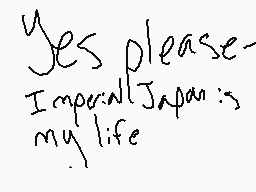 Yes please-
Imperial Japan is
my life